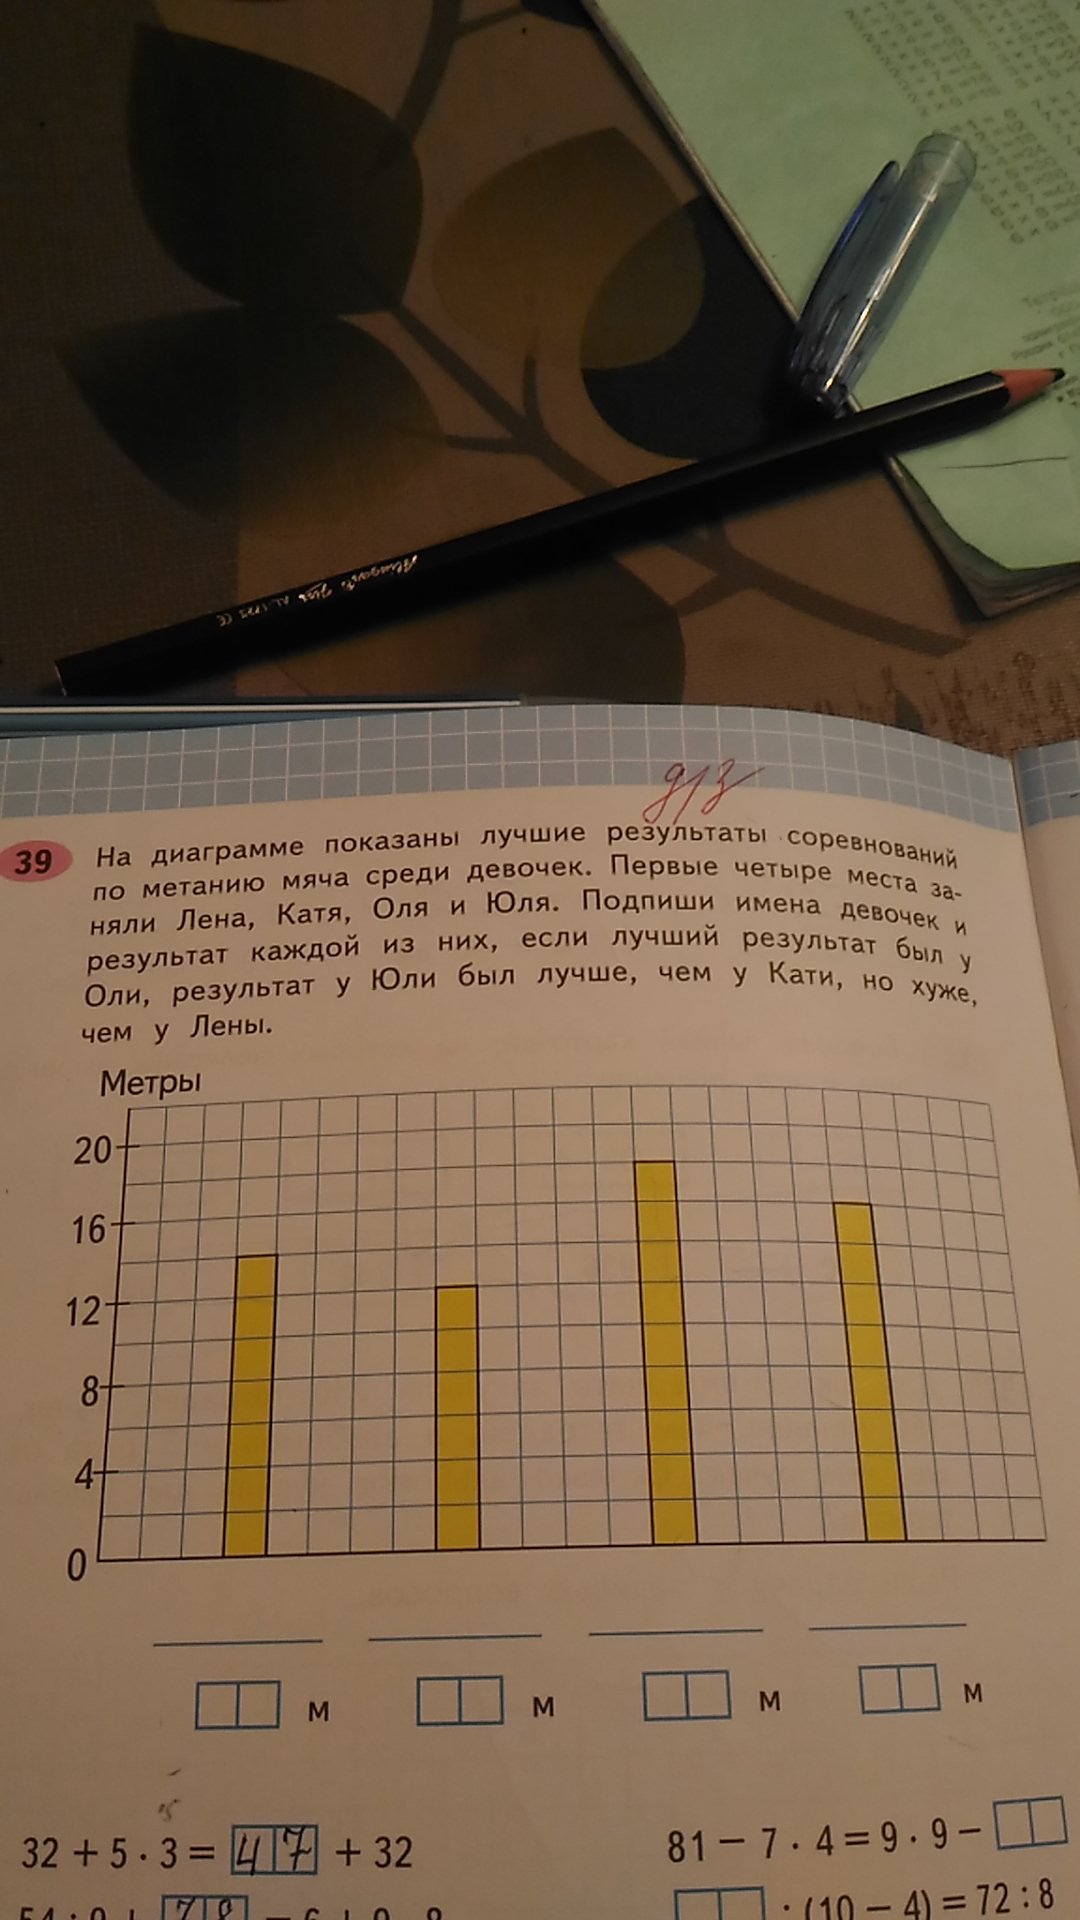 д/з
39 На диаграмме показаны лучшие результаты соревнований
по метанию мяча среди девочек. Первые четыре места за-
няли Лена, Катя, Оля и Юля. Подпиши имена девочек и
результат каждой из них, если лучший результат был у
Оли, результат у Юли был лучше, чем у Кати, но хуже,
чем у Лены.
Метры
20
16
12
8
4
0
м м м м
32 + 5 · 3 = 47 + 32
81 − 7 · 4 = 9 · 9 −
: (10 − 4) = 72 : 8